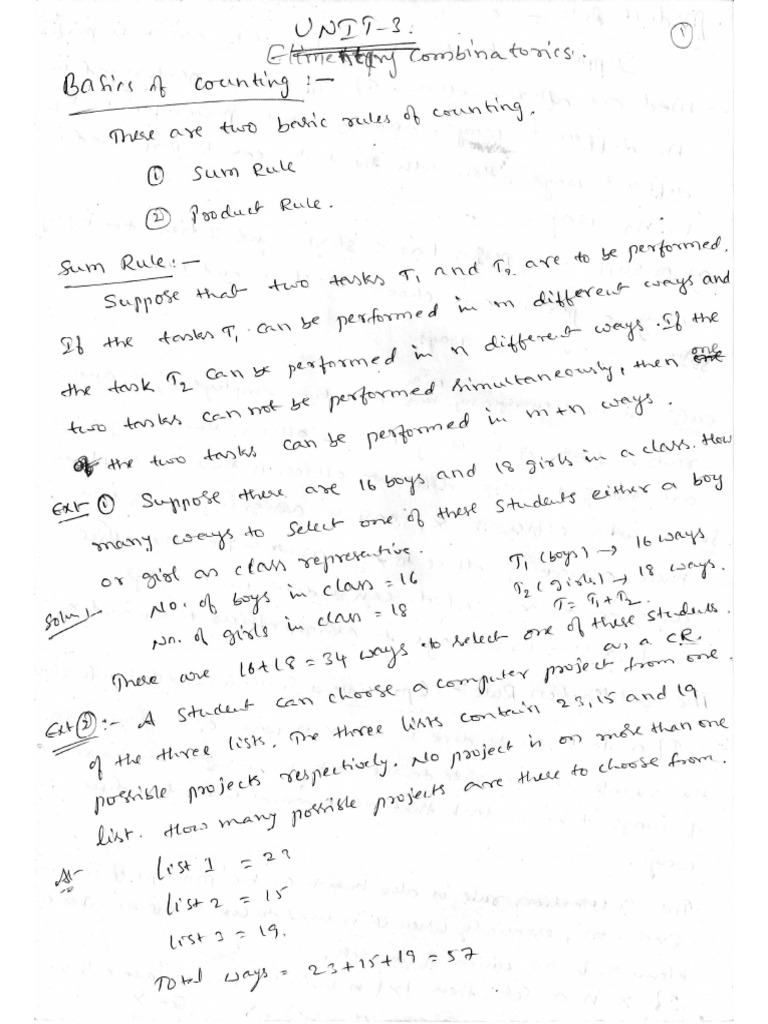 UNIT-3.
①
Elementary Combinatorics.
Basics of counting :-
There are two basic rules of counting.
① Sum Rule
② Product Rule.
Sum Rule :-
Suppose that two tasks T1 and T2 are to be performed.
If the tasks T1 can be performed in m different ways and
the task T2 can be performed in n different ways. If the
two tasks can not be performed simultaneously, then one
of the two tasks can be performed in m+n ways.
Ext ① Suppose there are 16 boys and 18 girls in a class. How
many ways to select one of these students either a boy
or girl as class representive.
Soln:- No. of boys in class = 16
T1 (boys) → 16 ways
No. of girls in class = 18
T2 (girls) → 18 ways.
T = T1 + T2.
There are 16+18 = 34 ways to select one of these students.
as a CR.
Ext ② :- A student can choose a computer project from one
of the three lists. The three lists contain 23, 15 and 19
possible projects respectively. No project is on more than one
list. How many possible projects are there to choose from.
A:- List 1 = 23
List 2 = 15
List 3 = 19.
Total ways = 23+15+19 = 57